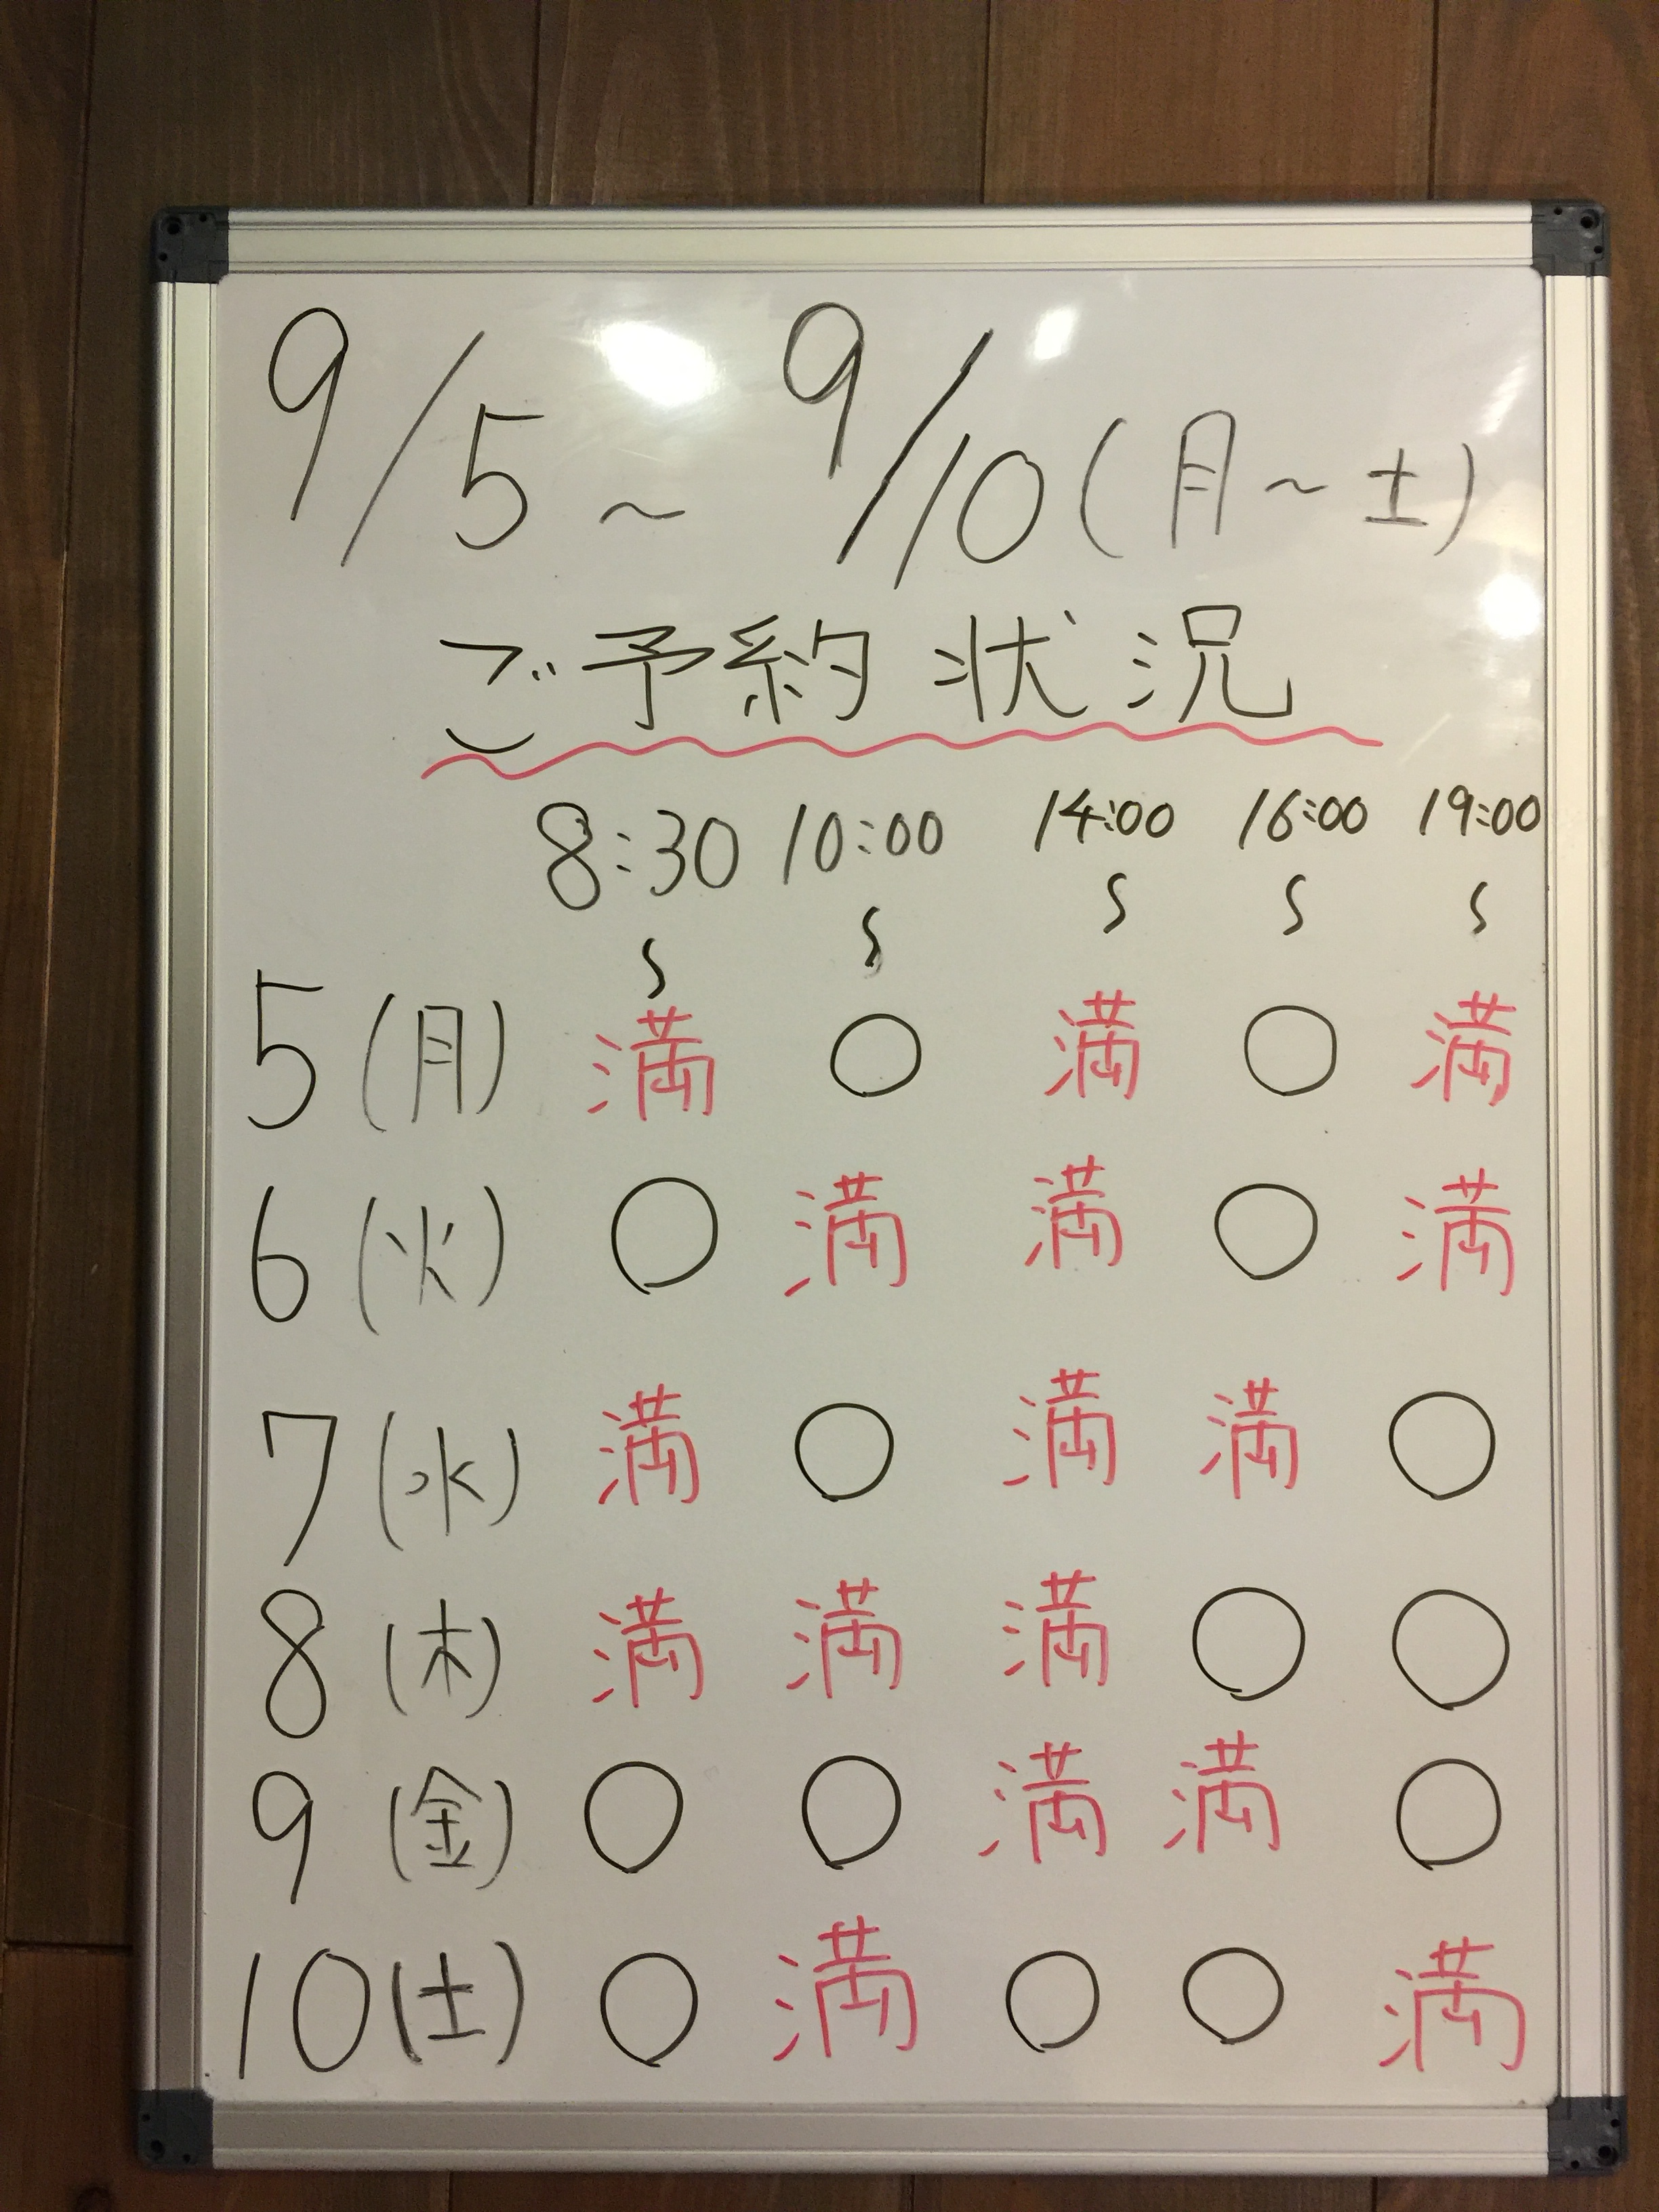 9/5 ~ 9/10 (月~土)
ご予約状況
8:30 10:00 14:00 16:00 19:00
〜 〜 〜 〜 〜
5 (月) 満 ○ 満 ○ 満
6 (火) ○ 満 満 ○ 満
7 (水) 満 ○ 満 満 ○
8 (木) 満 満 満 ○ ○
9 (金) ○ ○ 満 満 ○
10 (土) ○ 満 ○ ○ 満